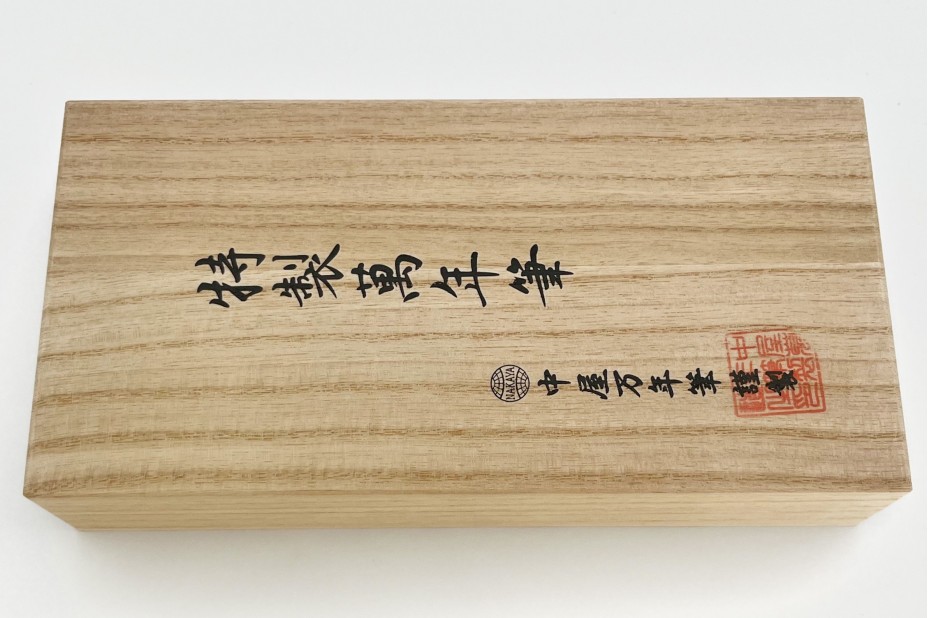 特製萬年筆
NAKAYA
中屋万年筆謹製